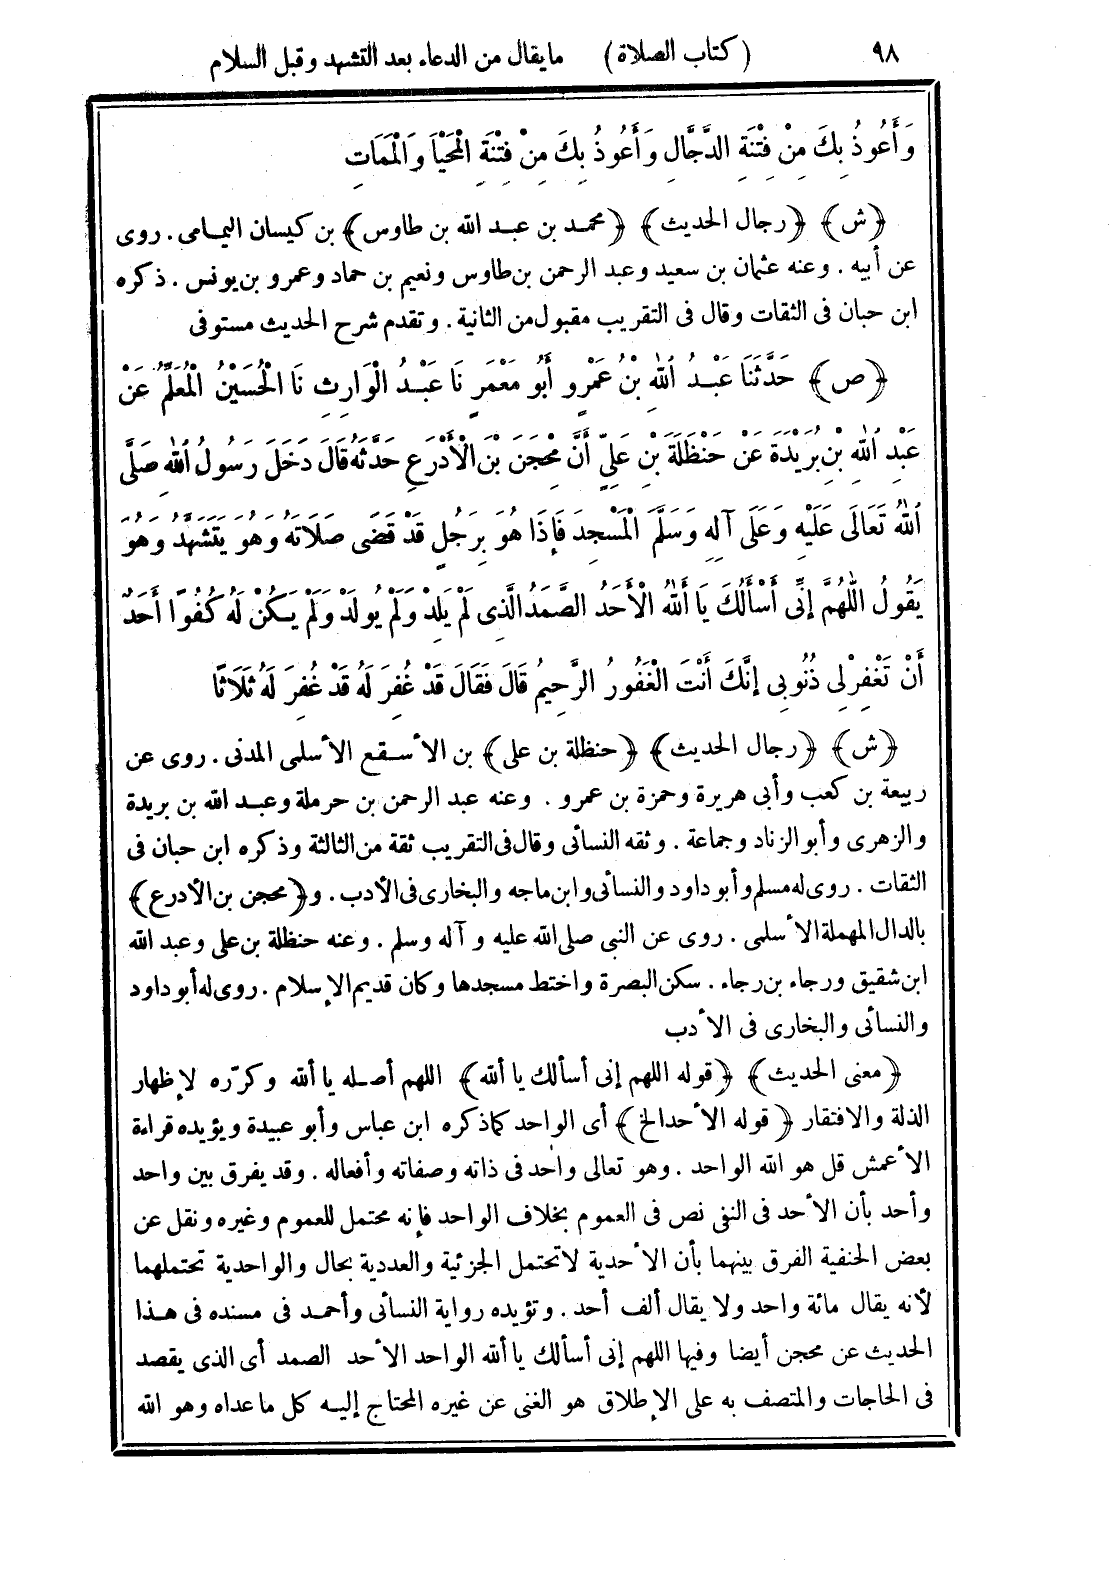 ٩٨ (كتاب الصلاة) ما يقال من الدعاء بعد التشهد وقبل السلام
وَأَعُوذُ بِكَ مِنْ فِتْنَةِ الدَّجَّالِ وَأَعُوذُ بِكَ مِنْ فِتْنَةِ الْمَحْيَا وَالْمَمَاتِ
﴿ش﴾ ﴿رجال الحديث﴾ ﴿محمد بن عبد الله بن طاوس﴾ بن كيسان اليمامى . روى
عن أبيه . وعنه عثمان بن سعيد وعبد الرحمن بن طاوس ونعيم بن حماد وعمرو بن يونس . ذكره
ابن حبان فى الثقات وقال فى التقريب مقبول من الثانية . وتقدم شرح الحديث مستوفى
﴿ص﴾ حَدَّثَنَا عَبْدُ اللهِ بْنُ عَمْرٍو أَبُو مَعْمَرٍ نَا عَبْدُ الْوَارِثِ نَا الْحُسَيْنُ الْمُعَلِّمُ عَنْ
عَبْدِ اللهِ بْنِ بُرَيْدَةَ عَنْ حَنْظَلَةَ بْنِ عَلِيٍّ أَنَّ مِحْجَنَ بْنَ الْأَدْرَعِ حَدَّثَهُ قَالَ دَخَلَ رَسُولُ اللهِ صَلَّى
اللهُ تَعَالَى عَلَيْهِ وَعَلَى آلِهِ وَسَلَّمَ الْمَسْجِدَ فَإِذَا هُوَ بِرَجُلٍ قَدْ قَضَى صَلَاتَهُ وَهُوَ يَتَشَهَّدُ وَهُوَ
يَقُولُ اللَّهُمَّ إِنِّى أَسْأَلُكَ يَا أَللهُ الْأَحَدُ الصَّمَدُ الَّذِى لَمْ يَلِدْ وَلَمْ يُولَدْ وَلَمْ يَكُنْ لَهُ كُفُوًا أَحَدٌ
أَنْ تَغْفِرَ لِى ذُنُوبِى إِنَّكَ أَنْتَ الْغَفُورُ الرَّحِيمُ قَالَ فَقَالَ قَدْ غُفِرَ لَهُ قَدْ غُفِرَ لَهُ ثَلَاثًا
﴿ش﴾ ﴿رجال الحديث﴾ ﴿حنظلة بن على﴾ بن الأسقع الأسلمى المدنى . روى عن
ربيعة بن كعب وأبى هريرة وحمزة بن عمرو . وعنه عبد الرحمن بن حرملة وعبد الله بن بريدة
والزهرى وأبو الزناد وجماعة . وثقه النسائى وقال فى التقريب ثقة من الثالثة وذكره ابن حبان فى
الثقات . روى له مسلم وأبو داود والنسائى وابن ماجه والبخارى فى الأدب . و﴿محجن بن الأدرع﴾
بالدال المهملة الأسلمى . روى عن النبى صلى الله عليه وآله وسلم . وعنه حنظلة بن على وعبد الله
ابن شقيق ورجاء بن رجاء . سكن البصرة واختط مسجدها وكان قديم الإسلام . روى له أبو داود
والنسائى والبخارى فى الأدب
﴿معنى الحديث﴾ ﴿قوله اللهم إنى أسألك يا ألله﴾ اللهم أصله يا ألله وكرّره لإظهار
الذلة والافتقار ﴿قوله الأحد الخ﴾ أى الواحد كما ذكره ابن عباس وأبو عبيدة ويؤيده قراءة
الأعمش قل هو الله الواحد . وهو تعالى واحد فى ذاته وصفاته وأفعاله . وقد يفرق بين واحد
وأحد بأن الأحد فى النفى نص فى العموم بخلاف الواحد فإنه محتمل للعموم وغيره ونقل عن
بعض الحنفية الفرق بينهما بأن الأحدية لاتحتمل الجزئية والعددية بحال والواحدية تحتملهما
لأنه يقال مائة واحد ولا يقال ألف أحد . وتؤيده رواية النسائى وأحمد فى مسنده فى هذا
الحديث عن محجن أيضا وفيها اللهم إنى أسألك يا ألله الواحد الأحد الصمد أى الذى يقصد
فى الحاجات والمتصف به على الإطلاق هو الغنى عن غيره المحتاج إليه كل ما عداه وهو الله